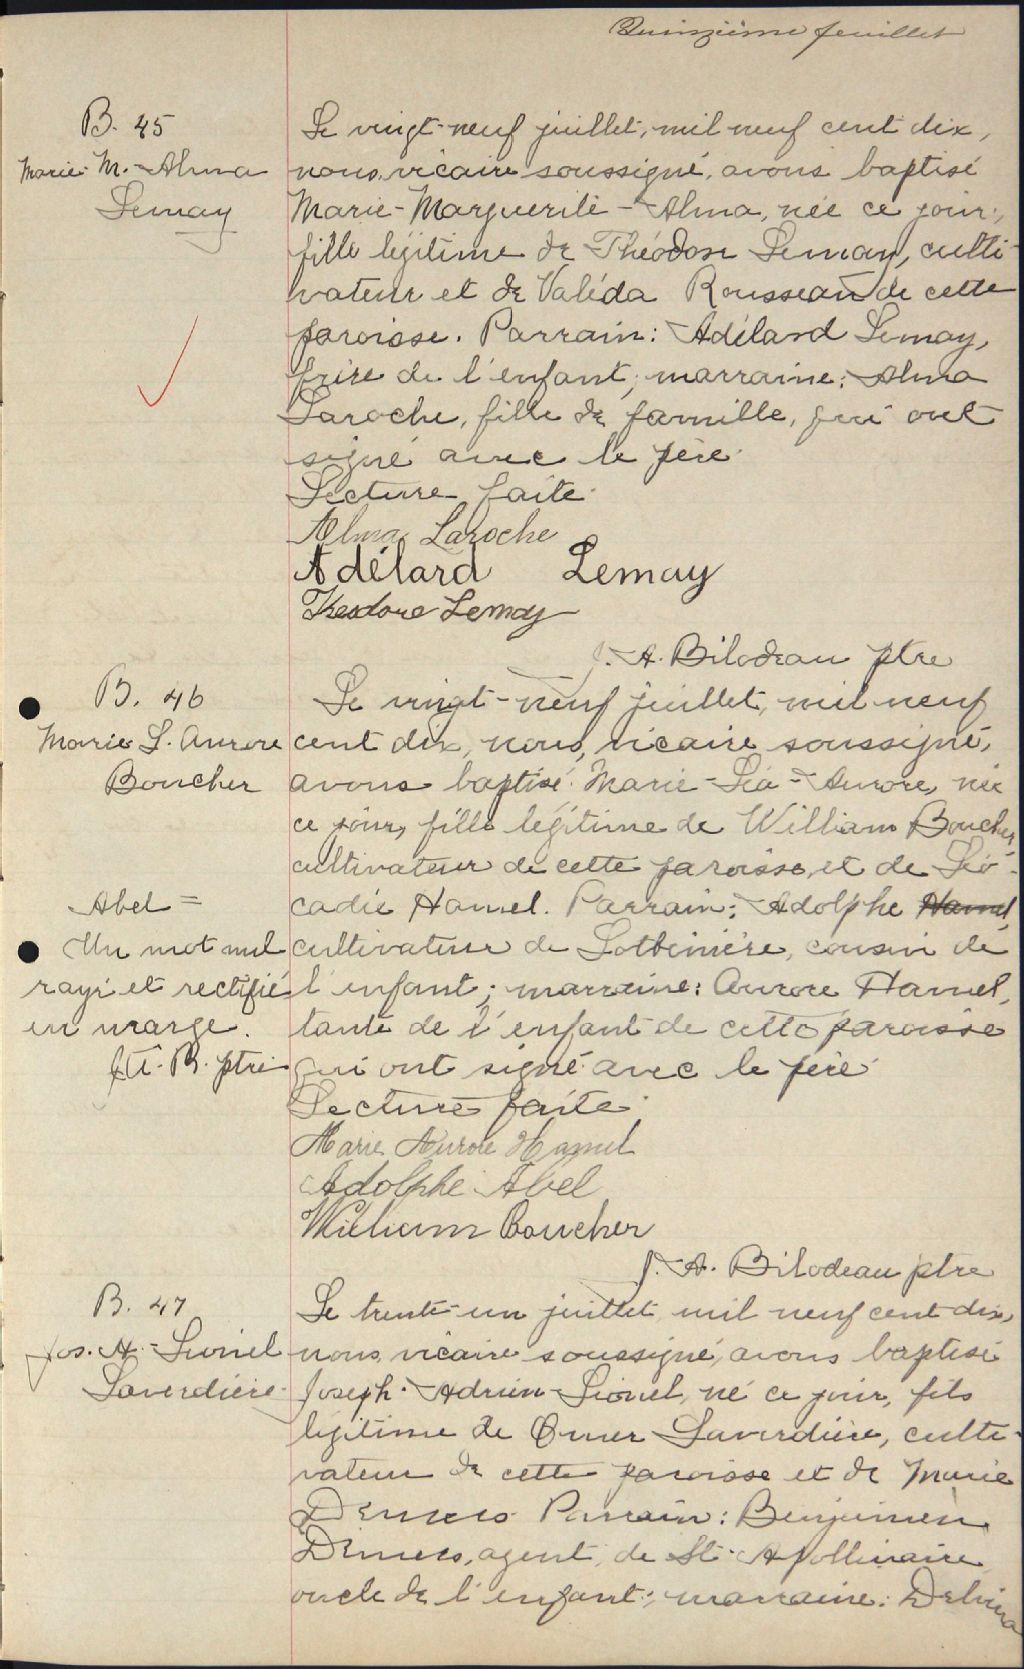 Quinzième feuillet
B. 45
Marie M. Alma
Lemay
Le vingt-neuf juillet, mil neuf cent dix,
nous, vicaire soussigné, avons baptisé
Marie-Marguerite-Alma, née ce jour,
fille légitime de Théodose Lemay, culti-
vateur et de Valéda Rousseau de cette
paroisse. Parrain: Adélard Lemay,
frère de l'enfant; marraine: Alma
Laroche, fille de famille, qui ont
signé avec le père.
Lecture faite.
Alma Laroche
Adélard Lemay
Theodore Lemay
J. A. Bilodeau ptre
B. 46
Marie L. Aurore
Boucher
Le vingt-neuf juillet, mil neuf
cent dix, nous, vicaire soussigné,
avons baptisé Marie-Léa-Aurore, née
ce jour, fille légitime de William Boucher,
cultivateur de cette paroisse et de Léo-
cadie Hamel. Parrain: Adolphe Hamel,
cultivateur de Lotbinière, cousin de
l'enfant; marraine: Aurore Hamel,
tante de l'enfant de cette paroisse
qui ont signé avec le père.
Lecture faite.
Abel =
Un mot nul
rayé et rectifié
en marge.
J.A.B. ptre
Marie Aurore Hamel
Adolphe Abel
William Boucher
J. A. Bilodeau ptre
B. 47
Jos. A.-Lionel
Laverdière.
Le trente-un juillet mil neuf cent dix,
nous, vicaire soussigné, avons baptisé
Joseph-Adrien-Lionel, né ce jour, fils
légitime de Omer Laverdière, culti-
vateur de cette paroisse et de Marie
Demers. Parrain: Benjamin
Demers, agent, de St-Apollinaire
oncle de l'enfant; marraine: Delvina